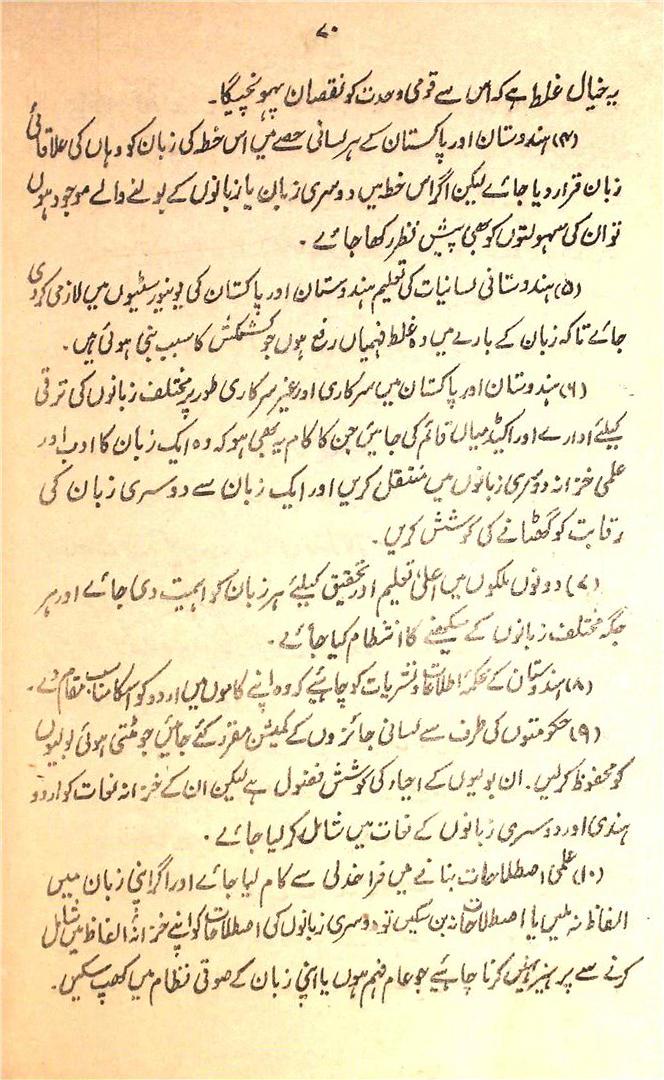 ۷۰
یہ خیال غلط ہے کہ اس سے قومی وحدت کو نقصان پہونچیگا۔
(۴) ہندوستان اور پاکستان کے ہر لسانی حصے میں اس خطہ کی زبان کو وہاں کی علاقائی
زبان قرار دیا جائے لیکن اگر اس خطہ میں دوسری زبان یا زبانوں کے بولنے والے موجود ہوں
تو ان کی سہولتوں کو بھی پیش نظر رکھا جائے ۔
(۵) ہندوستانی لسانیات کی تعلیم ہندوستان اور پاکستان کی یونیورسٹیوں میں لازمی کر دی
جائے تاکہ زبان کے بارے میں وہ غلط فہمیاں رفع ہوں جو کشمکش کا سبب بنی ہوئی ہیں۔
(۶) ہندوستان اور پاکستان میں سرکاری اور غیر سرکاری طور پر مختلف زبانوں کی ترقی
کیلئے ادارے اور اکیڈمیاں قائم کی جائیں جن کا کام یہ بھی ہو کہ وہ ایک زبان کا ادب اور
علمی خزانہ دوسری زبانوں میں منتقل کریں اور ایک زبان سے دوسری زبان کی
رقابت کو گھٹانے کی کوشش کریں۔
(۷) دونوں ملکوں میں اعلیٰ تعلیم اور تحقیق کیلئے ہر زبان کو اہمیت دی جائے اور ہر
جگہ مختلف زبانوں کے سیکھنے کا انتظام کیا جائے ۔
(۸) ہندوستان کے محکمہ اطلاعات و نشریات کو چاہئیے کہ وہ اپنے کاموں میں اردو کو اسکا مناسب مقام دے۔
(۹) حکومتوں کی طرف سے لسانی جائزوں کے کمیشن مقرر کئے جائیں جو مٹتی ہوئی بولیوں
کو محفوظ کرلیں۔ ان بولیوں کے احیاء کی کوشش فضول ہے لیکن ان کے خزانہ لغات کو اردو
ہندی اور دوسری زبانوں کے لغات میں شامل کر لیا جائے ۔
(۱۰) علمی اصطلاحات بنانے میں فراخدلی سے کام لیا جائے اور اگر اپنی زبان میں
الفاظ نہ ملیں یا اصطلاحات نہ بن سکیں تو دوسری زبانوں کی اصطلاحات کو اپنے خزانۂ الفاظ میں شامل
کرنے سے پرہیز نہیں کرنا چاہئیے جو عام فہم ہوں یا اپنی زبان کے صوتی نظام میں کھپ سکیں۔